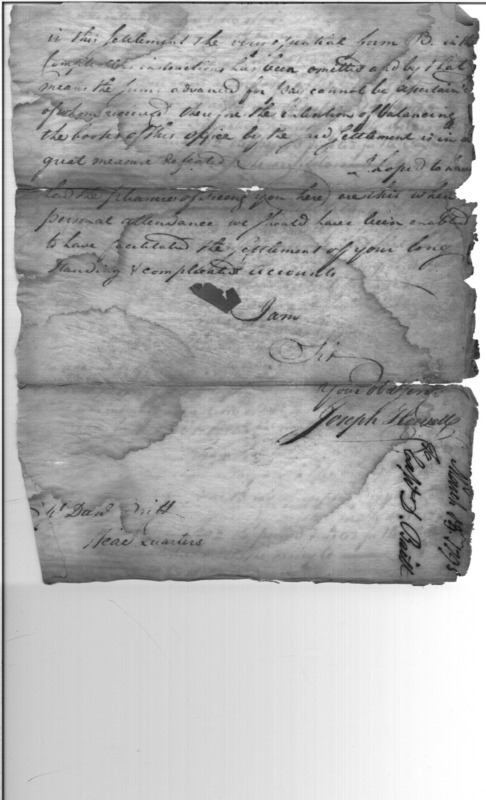 in this settlement the very essential form B. in the
Comptrollers instructions has been omitted and by that
means the sums advanced for pay cannot be ascertain'd
of whom received therefore the intentions of balancing
the books of this office by the said settlement is in a
great measure defeated I hoped to have
had the pleasure of seeing you here ere this when
personal attendance we should have been enabled
to have facilitated the settlement of your long
standing & complicated accounts
I am
Sir
Your Obd Serv
Joseph Howell
Britt
Head Quarters
Capt D Britt
1793